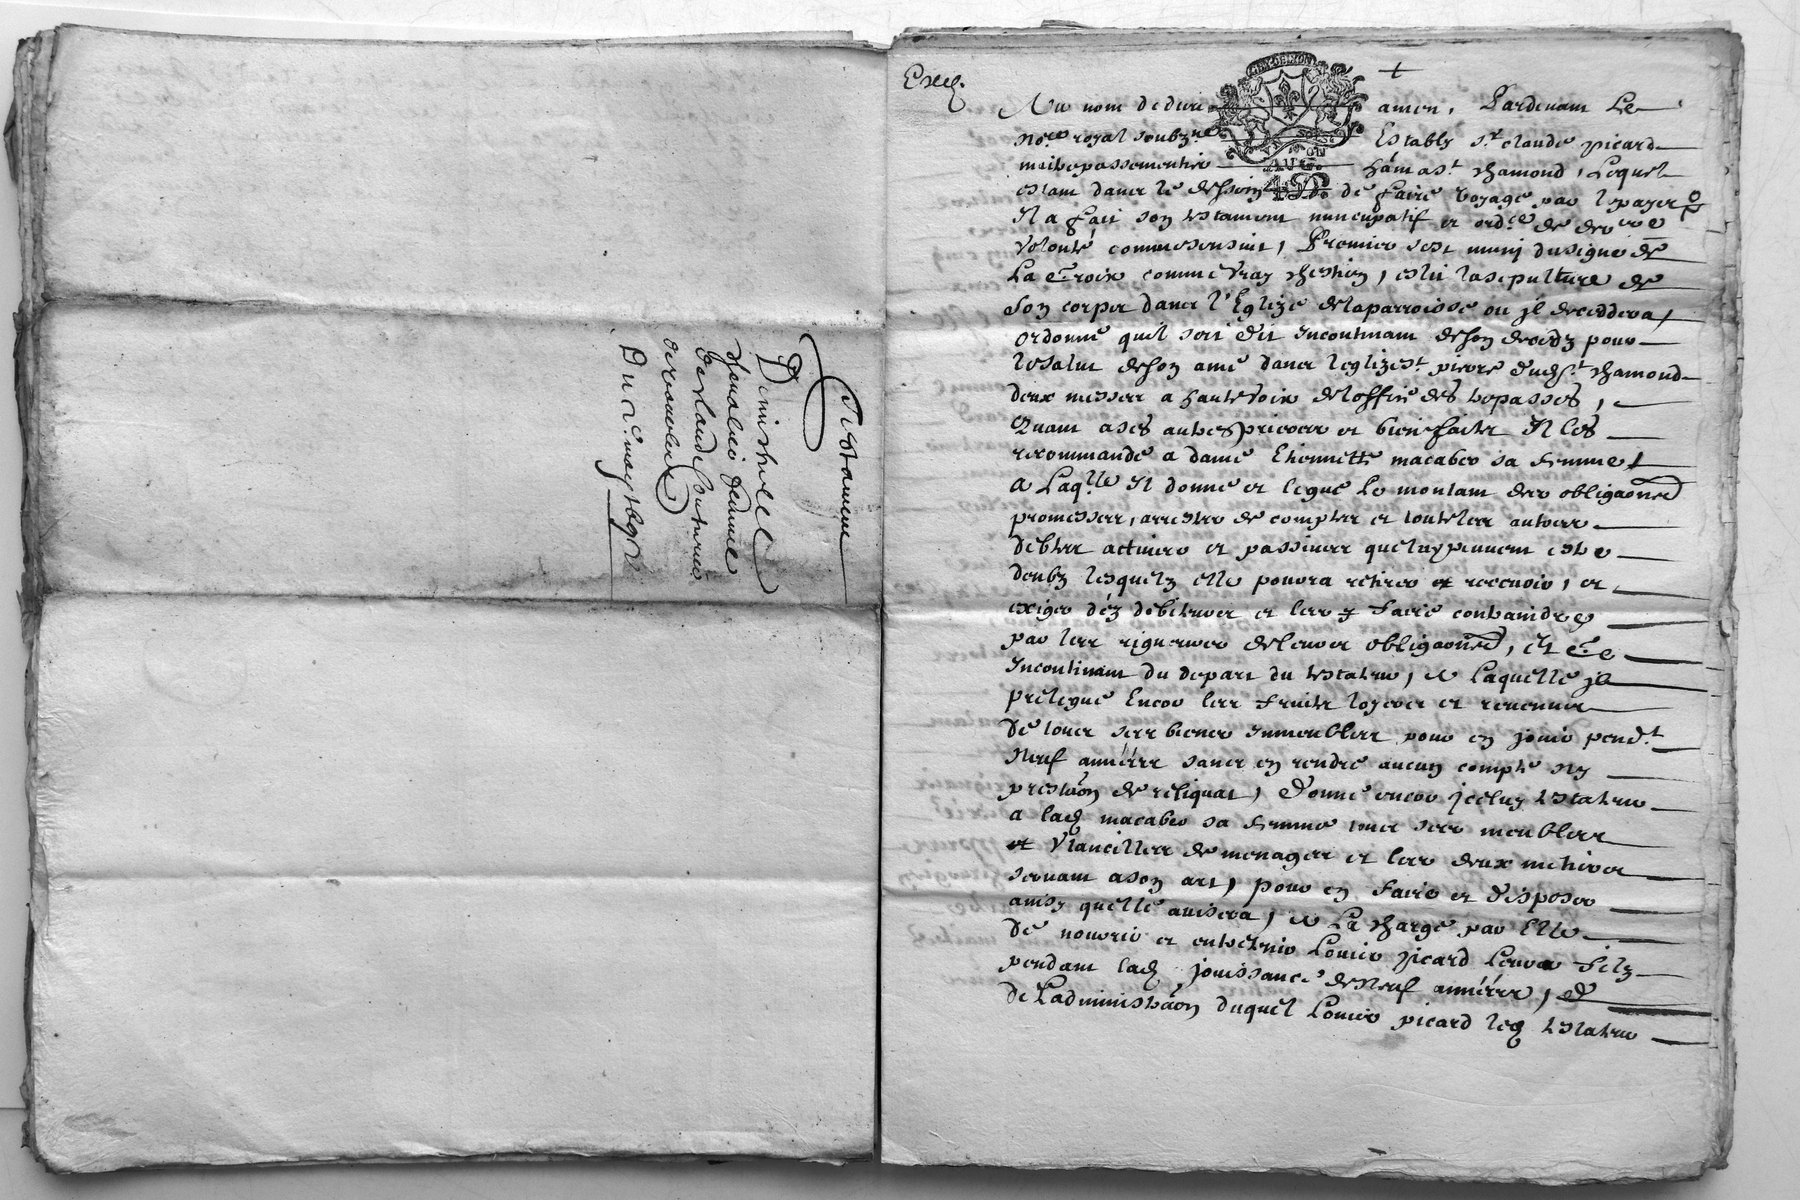 Testament
Denishele
Chevalier femme
Du 2e. may 1692
Exed.
+
Au nom de dieu amen, Pardevant Le
Nore. royal soubzne Estably sr. claude picard
maitre passementier a st chamond, Lequel
estant dans le dessein de faire voyage par
Il a fait son testament nuncupatif et ordce de derre
volonté comme sensuit, Premier sest muni du signe de
La Croix comme vray chestien, eslit la sepulture de
Son corps dans l'Eglize de la parroisse ou il deceddera,
ordonne quil soit dit Incontinant de son decedz pour
le salut de son ame dans leglize st. pierre dudt. st. chamond
deux messes a haute voix de loffice des trepassés,
Quant a ses autres prieres et bienfaits Il les
recommande a dame Ethiennette macabeo sa femme,
a Laqlle Il donne et legue Le montant des obligaons
promesses, arrestes de comptes et toutes les autres
debtes actives et passives que luy peuvent estre
deubz lesquelz elle pourra retirer et recevoir, et
exiger des debiteurs et les y faire contraindre
par les rigueurs de leurs obligaons, Et Ce
Incontinant du depart du testateur, a Laquelle Il
prelegue Encor les fruits loyers et revenus
de tous ses biens Immeubles pour en jouir pendt.
Neuf années sans en rendre aucun compte Ny
prestaon de reliquat, Donne encor jceluy testateur
a lad macabeo sa femme tous ses meubles
et Utancilles de menages et les deux mestiers
servant a son art, pour en faire et disposer
ainsy quelle avisera, a La charge par Elle
de nourrir et entretenir Louis picard Leur filz
pendant lad jouissance de Neuf années, &
de Ladministraon duquel Louis picard led testateur